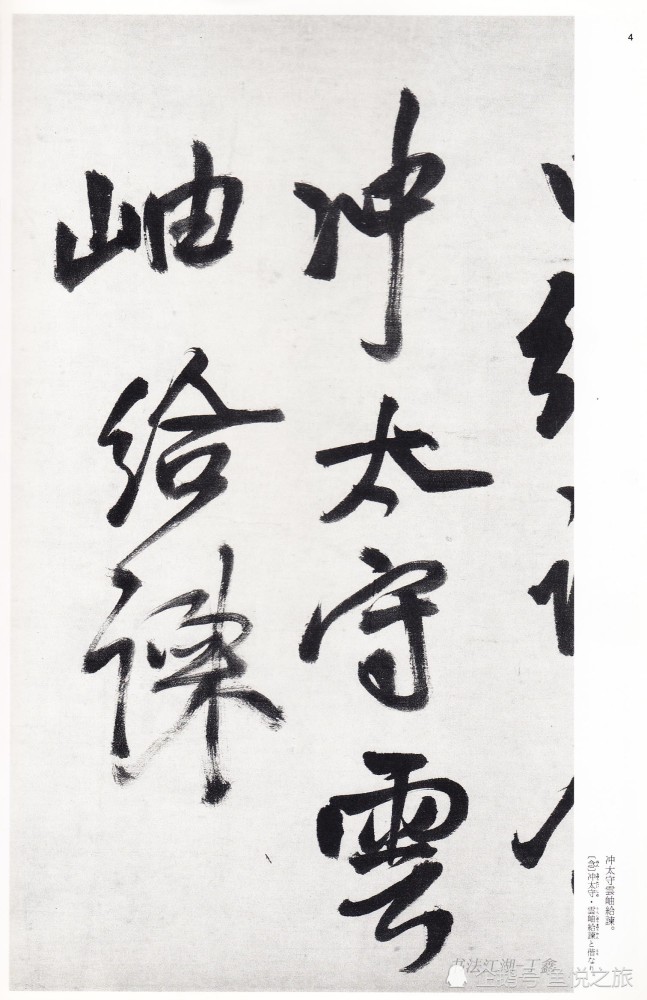 4
冲太守雲
岫給諫
冲太守雲岫給諫。
冲太守・雲岫給諫と偕な
书法江湖-丁鑫
企鹅号 笔悦之旅